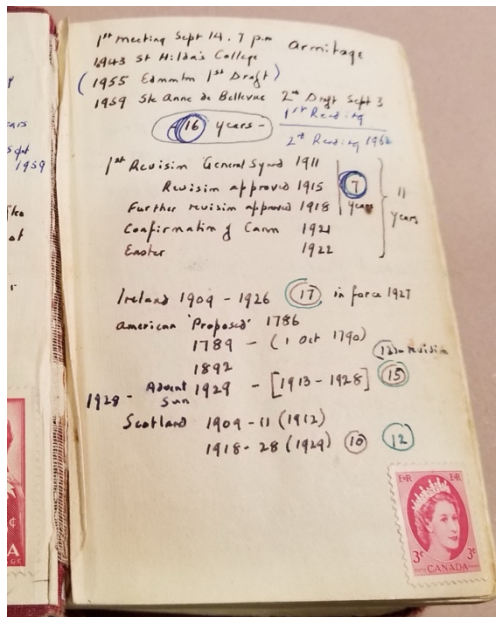 ears
Sept
1959
1st Meeting Sept 14. 7 pm Armitage
1943 St Hilda's College
(1955 Edmonton 1st Draft)
1959 Ste Anne de Bellevue 2nd Draft Sept 3
1st Reading
16 years -
2nd Reading 1962
1st Revision General Synod 1911
Revision approved 1915
7 years
11 years
Further revision approved 1918
Confirmation of Canon 1921
Easter 1922
Ireland 1909 - 1926 17 in force 1927
American 'Proposed' 1786
1789 - (1 Oct 1790)
1892
1928 - Advent Sun 1929 - [1913 - 1928] 15
Scotland 1909 - 11 (1912)
1918 - 28 (1929) 10 12
E II R E II R
3¢ 3¢
CANADA